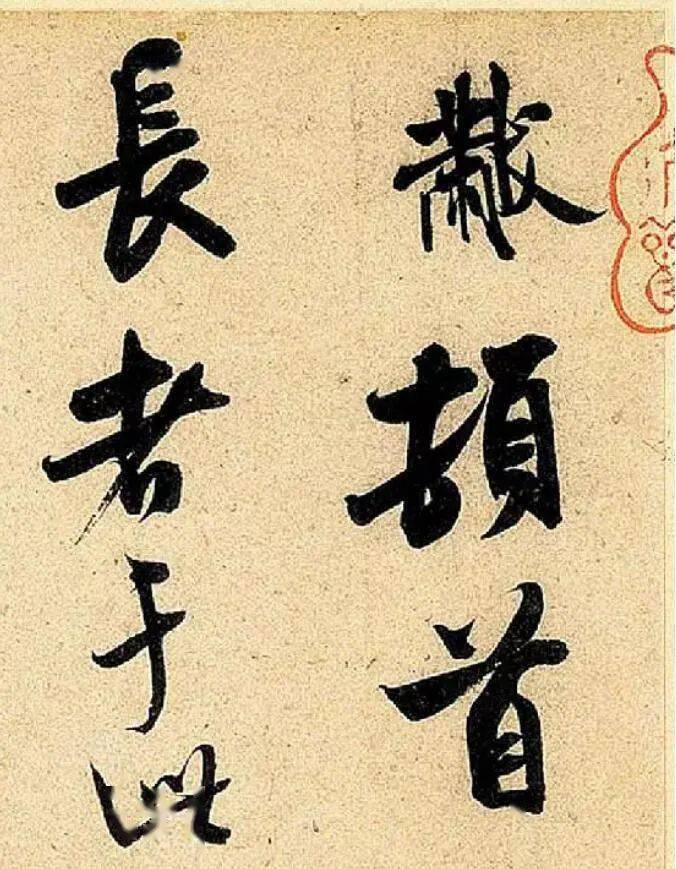 黻頓首
長者于此